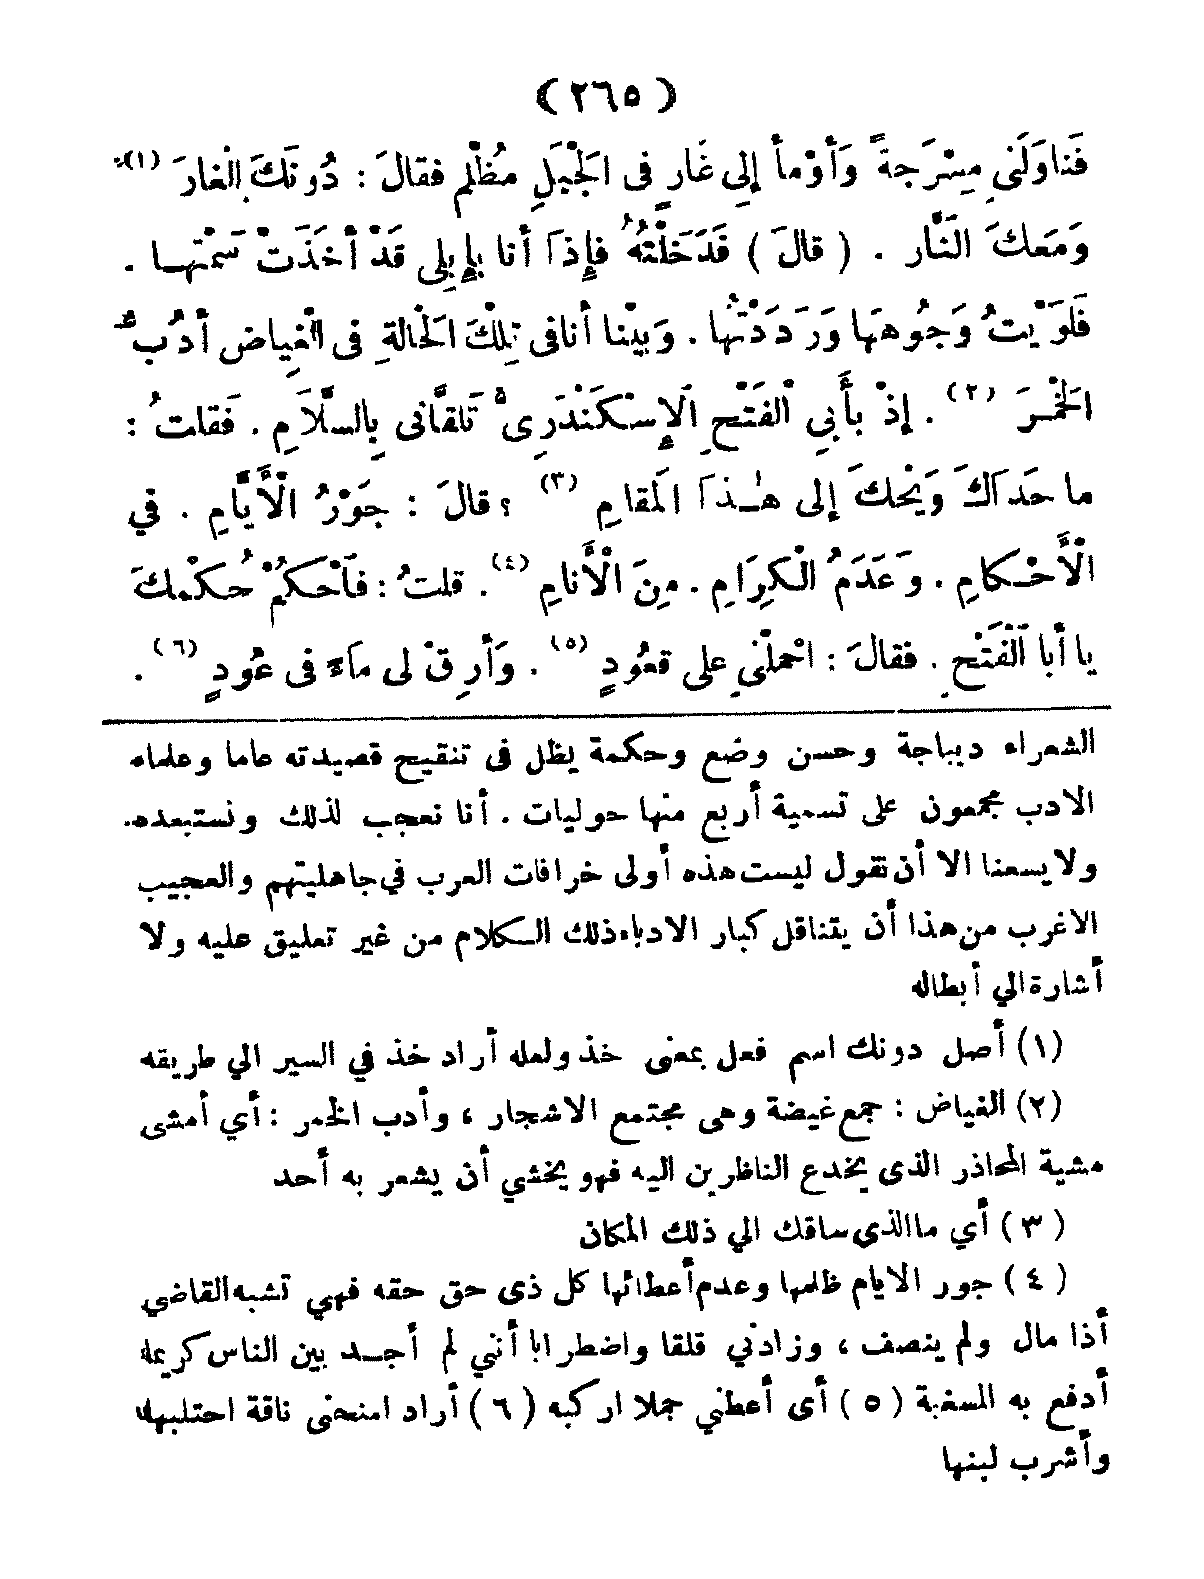 ( ٢٦٥ )
فَناوَلَنِي مِسْرَجةً وَأَوْمأَ إلِي غَارٍ فِى الْجَبَلِ مُظْلِمٍ فقالَ : دُونَكَ الْغارَ (١).
وَمَعكَ النَّار . ( قالَ ) فَدَخَلْتهُ فإِذَا أنا بِإِبِلِى قَدْ أخَذَتْ سَمْتَهـا .
فَلَوَيْتُ وَجُوهَهَا وَرَدَدْتُها . وَبيْنا أنافى تِلْكَ الْحَالةِ فى الْغِياض أدُب
الْخَمـرَ (٢) . إذْ بأَبِي الْفَتْحِ الإِسْكَنْدَرِىِّ تَلقَّانى بِالسَّلاَمِ . فَقلتُ :
ما حَدَاكَ وَيْحكَ إلى هـٰذَا الْمَقامِ (٣) ؟ قالَ : جَوْرُ الْأَيَّامِ . في
الْأَحْـكامِ . وَعَدَمُ الْكِرَامِ . مِنَ الْأَنامِ (٤) . قلتُ : فاَحْكمْ حُكمْكَ
يا أبا الْفَتْحِ . فقالَ : احْملْنِي على قعُودٍ (٥) . وَأَرِقْ لى مَاءً فى عُودٍ (٦) .
الشعراء ديباجة وحسن وضع وحكمة يظل فى تنقيح قصيدته عاما وعلماء
الادب مجمعون على تسمية أربع منها حوليات . أنا نعجب لذلك ونستبعده.
ولا يسعنا الا أن نقول ليست هذه أولى خرافات العرب في جاهليتهم والعجيب
الاغرب من هذا أن يتناقل كبار الادباء ذلك الـكلام من غير تعليق عليه ولا
أشارة الي أبطاله
(١) أصل دونك اسم فعل بمعنى خذ ولعله أراد خذ في السير الي طريقه
(٢) الغياض : جمع غيضة وهى مجتمع الاشجار ، وأدب الخمر : أي أمشى
مشية المحاذر الذى يخدع الناظرين اليه فهو يخشي أن يشعر به أحد
( ٣ ) أي ما الذي ساقك الي ذلك المكان
( ٤ ) جور الايام ظلمها وعدم أعطائها كل ذى حق حقه فهي تشبه القاضي
أذا مال ولم ينصف ، وزادني قلقا واضطرابا أنني لم أجـد بين الناس كريما
أدفع به المسغبة ( ٥ ) أى أعطني جملا اركبه ( ٦ ) أراد امنحنى ناقة احتلبها
وأشرب لبنها